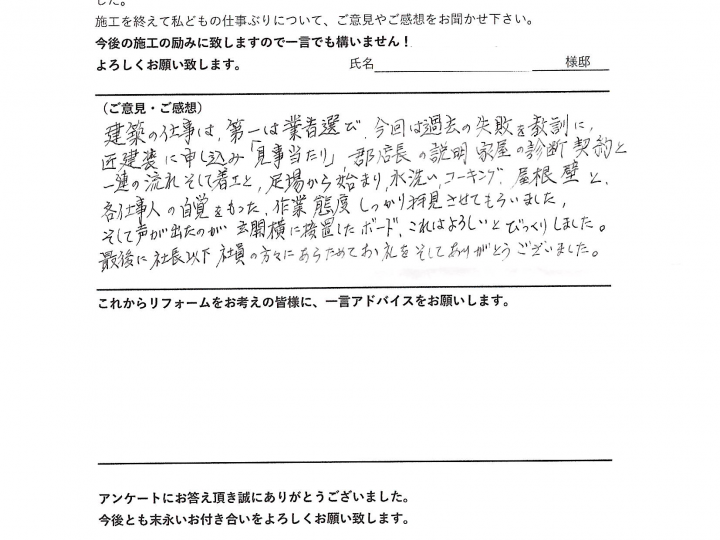 した。
施工を終えて私どもの仕事ぶりについて、ご意見やご感想をお聞かせ下さい。
今後の施工の励みに致しますので一言でも構いません！
よろしくお願い致します。 氏名 様邸
（ご意見・ご感想）
建築の仕事は、第一は業者選び、今回は過去の失敗を教訓に、
匠建装に申し込み「見事当たり」、郡店長の説明 家屋の診断 契約と
一連の流れ そして着工と、足場から始まり、水洗い、コーキング、屋根 壁 と、
各仕事人の自覚をもった、作業 態度 しっかり拝見させてもらいました、
そして声が出たのが 玄関横に設置したボード、これはよろしいとびっくりしました。
最後に社長以下 社員の方々にあらためてお礼をそしてありがとうございました。
これからリフォームをお考えの皆様に、一言アドバイスをお願いします。
アンケートにお答え頂き誠にありがとうございました。
今後とも末永いお付き合いをよろしくお願い致します。